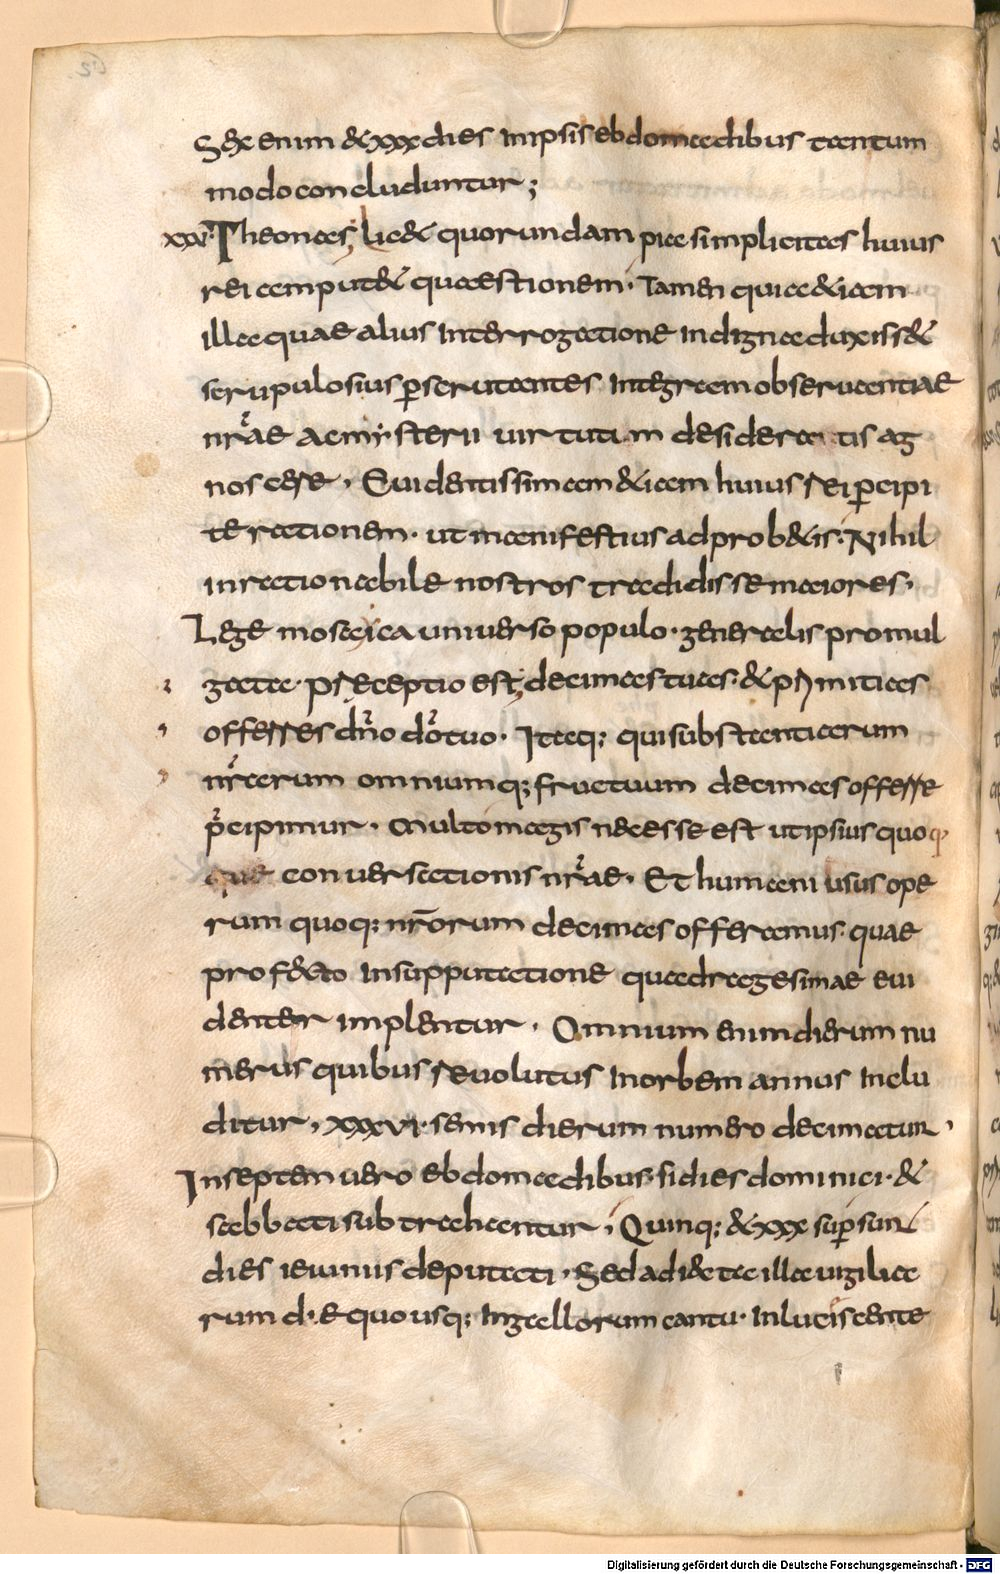 S&x enim &xxx dies in ipsis ebdomadibus tantum
modo concluduntur;
XXV. Theonas; lic& quorundam pia simplicitas huius
rei tam put& quaestionem. Tamen quia &iam
illa quae alius interrogatione indigna duxiss&
scrupulosius pscrutantes integram observantiae
nr̄ae ac mysterii virtutum desiderantis ag
noscere. Evidentissimam &iam huius rei pcipi
te rationem. ut manifestius adprob&is. Nihil
inrationabile nostros tradidisse maiores.
Lege mosayca universo populo. generalis promul
gata. preceptio est; decimas tuas. & primitias
offerres dn̄o dō tuo. Itaq; qui substantiarum
nr̄arum omniumq; fructuum decimas offerre
p̄cipimur. Multo magis necesse est ut ipsius quoq;
que conversationis nr̄ae. Et humani usus ope
rum quoq; nr̄orum decimas offeramus. quae
prof&cto in supputatione quadragesimae evi
denter implentur. Omnium enim dierum nu
merus quibus revolutus in orbem annus inclu
ditur, xxxvi. semis dierum numero decimatur.
In septem vero ebdomadibus. si dies dominici. &
sabbati subtrahantur, Quinq; &xxx supsunt
dies ieiuniis deputati. Sed adi&ta illa vigilia
rum die quo usq; in gallorum cantu. inluciscente